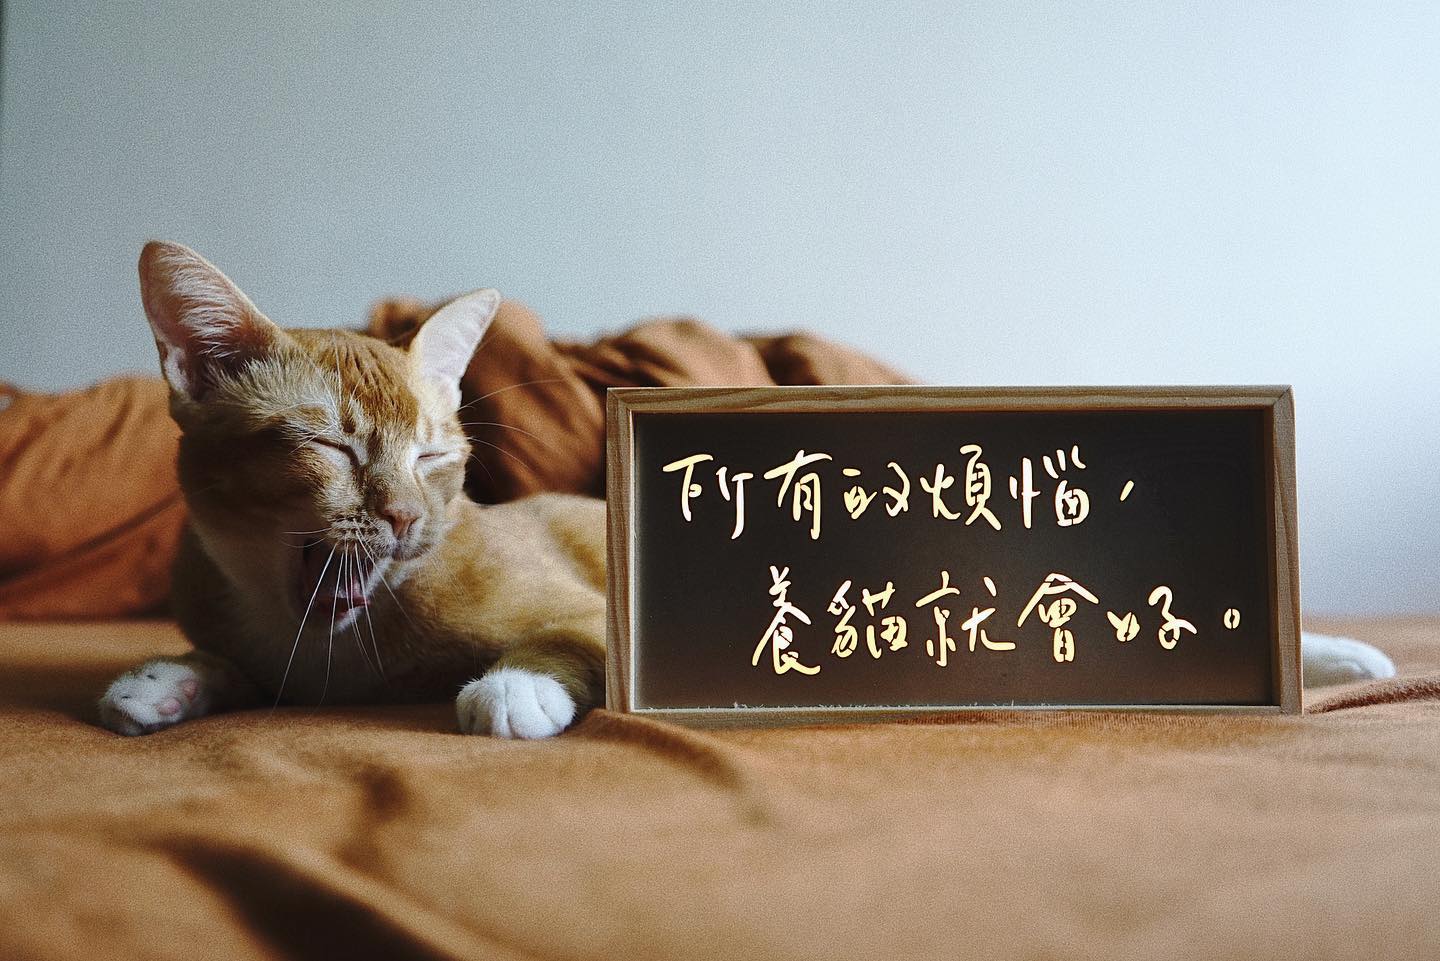 所有的煩惱，
養貓就會好。